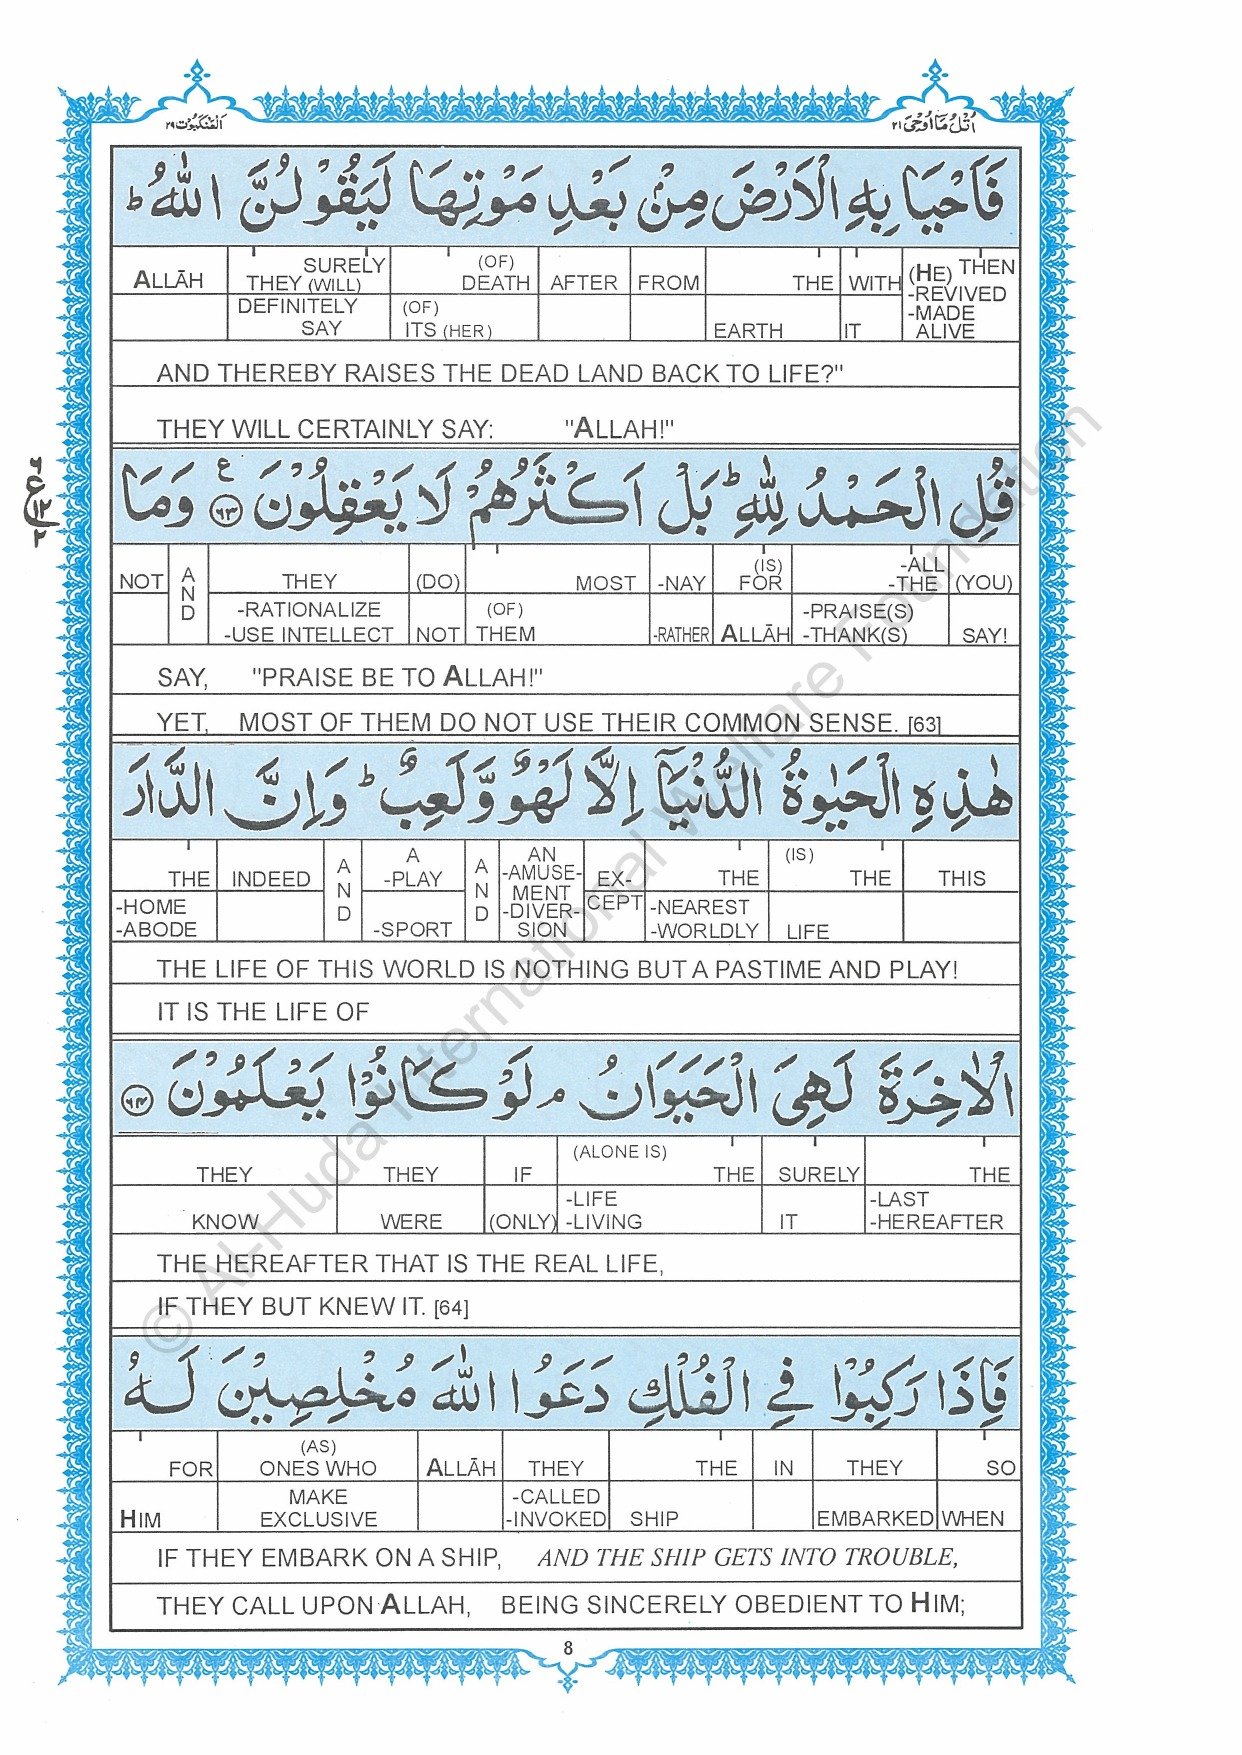 اُتْلُ مَآ اُوْحِیَ ۲۱
اَلْعَنْكَبُوْت ۲۹
فَاَحْيَا بِهِ الْاَرْضَ مِنْۢ بَعْدِ مَوْتِهَا لَيَقُوْلُنَّ اللّٰهُ ؕ
ALLĀH | SURELY THEY (WILL) | (OF) DEATH | AFTER | FROM | THE | WITH | (HE) THEN -REVIVED -MADE ALIVE
DEFINITELY SAY | (OF) ITS (HER) | EARTH | IT
AND THEREBY RAISES THE DEAD LAND BACK TO LIFE?"
THEY WILL CERTAINLY SAY: "ALLAH!"
قُلِ الْحَمْدُ لِلّٰهِ ؕ بَلْ اَكْثَرُهُمْ لَا يَعْقِلُوْنَ ۶۳ ع وَمَا
NOT | AND | THEY | (DO) | MOST | -NAY | (IS) FOR | -ALL -THE | (YOU)
-RATIONALIZE -USE INTELLECT | NOT | (OF) THEM | -RATHER | ALLĀH | -PRAISE(S) -THANK(S) | SAY!
SAY, "PRAISE BE TO ALLAH!"
YET, MOST OF THEM DO NOT USE THEIR COMMON SENSE. [63]
هٰذِهِ الْحَيٰوةُ الدُّنْيَاۤ اِلَّا لَهْوٌ وَّلَعِبٌ ؕ وَاِنَّ الدَّارَ
THE | INDEED | AND | A -PLAY | AND | AN -AMUSE-MENT -DIVER-SION | EX-CEPT | THE | (IS) THE | THIS
-HOME -ABODE | -SPORT | -NEAREST -WORLDLY | LIFE
THE LIFE OF THIS WORLD IS NOTHING BUT A PASTIME AND PLAY!
IT IS THE LIFE OF
الْاٰخِرَةَ لَهِيَ الْحَيَوَانُ ۘ لَوْ كَانُوْا يَعْلَمُوْنَ ۶۴
THEY | THEY | IF | (ALONE IS) THE | SURELY | THE
KNOW | WERE | (ONLY) | -LIFE -LIVING | IT | -LAST -HEREAFTER
THE HEREAFTER THAT IS THE REAL LIFE,
IF THEY BUT KNEW IT. [64]
فَاِذَا رَكِبُوْا فِي الْفُلْكِ دَعَوُا اللّٰهَ مُخْلِصِيْنَ لَهُ
FOR | (AS) ONES WHO | ALLĀH | THEY | THE | IN | THEY | SO
HIM | MAKE EXCLUSIVE | -CALLED -INVOKED | SHIP | EMBARKED | WHEN
IF THEY EMBARK ON A SHIP, AND THE SHIP GETS INTO TROUBLE,
THEY CALL UPON ALLAH, BEING SINCERELY OBEDIENT TO HIM;
8
© Al-Huda International Welfare Foundation